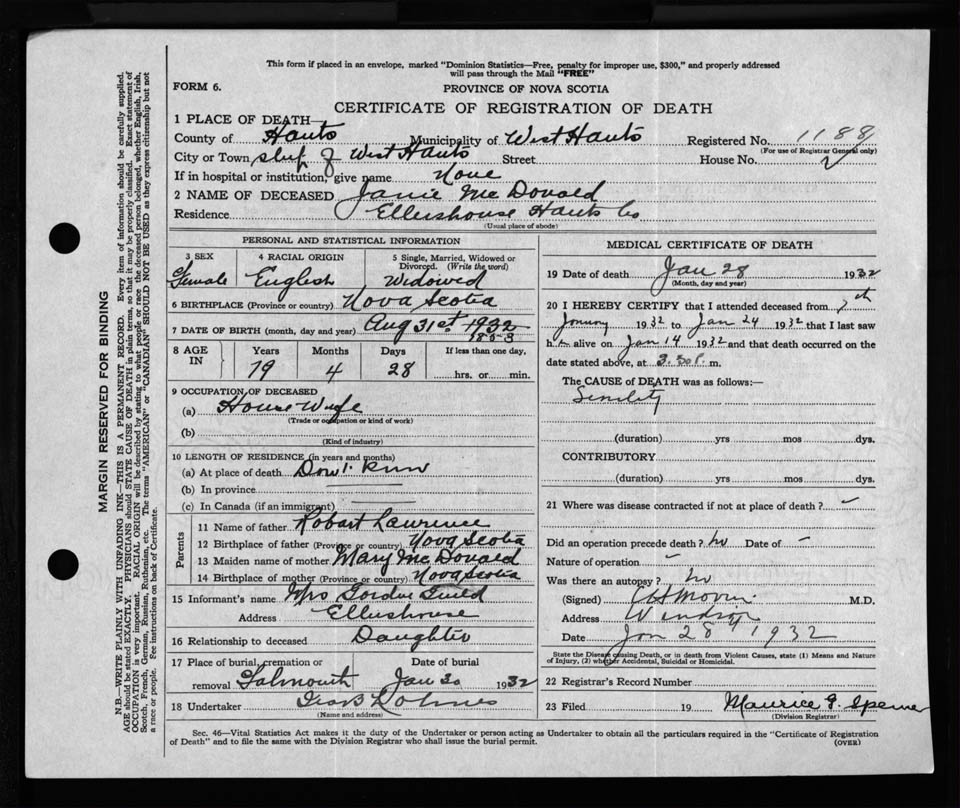 This form if placed in an envelope, marked "Dominion Statistics—Free, penalty for improper use, $300," and properly addressed
will pass through the Mail "FREE"
FORM 6.
PROVINCE OF NOVA SCOTIA
CERTIFICATE OF REGISTRATION OF DEATH
1 PLACE OF DEATH—
County of Hants Municipality of West Hants Registered No. 1188
(For use of Registrar General only)
City or Town of West Hants Street House No.
If in hospital or institution, give name None
2 NAME OF DECEASED Janie McDonald
Residence Ellershouse Hants Co
(Usual place of abode)
PERSONAL AND STATISTICAL INFORMATION
3 SEX 4 RACIAL ORIGIN 5 Single, Married, Widowed or
Divorced. (Write the word)
Female English Widowed
6 BIRTHPLACE (Province or country) Nova Scotia
7 DATE OF BIRTH (month, day and year) Aug 31st 1932
1853
8 AGE IN Years Months Days If less than one day,
79 4 28 hrs. or min.
9 OCCUPATION OF DECEASED
(a) House Wife
(Trade or occupation or kind of work)
(b)
(Kind of industry)
10 LENGTH OF RESIDENCE (in years and months)
(a) At place of death
(b) In province
(c) In Canada (if an immigrant)
Parents
11 Name of father Robart Lawrence
12 Birthplace of father (Province or country) Nova Scotia
13 Maiden name of mother Mary McDonald
14 Birthplace of mother (Province or country) Nova Scotia
15 Informant's name Mrs
Address Ellershouse
16 Relationship to deceased Daughter
17 Place of burial, cremation or Date of burial
removal Falmouth Jan 30 1932
18 Undertaker
(Name and address)
MEDICAL CERTIFICATE OF DEATH
19 Date of death Jan 28 1932
(Month, day and year)
20 I HEREBY CERTIFY that I attended deceased from 7th
January 1932 to Jan 24 1932 that I last saw
h alive on Jan 14 1932 and that death occurred on the
date stated above, at 3.30 P. m.
The CAUSE OF DEATH was as follows:—
Senility
(duration) yrs mos dys.
CONTRIBUTORY
(duration) yrs mos dys.
21 Where was disease contracted if not at place of death? –
Did an operation precede death? no Date of –
Nature of operation –
Was there an autopsy? no
(Signed) M.D.
Address Windsor
Date Jan 28 1932
State the Disease causing Death, or in death from Violent Causes, state (1) Means and Nature
of Injury, (2) whether Accidental, Suicidal or Homicidal.
22 Registrar's Record Number
23 Filed 19 Maurice
(Division Registrar)
Sec. 46—Vital Statistics Act makes it the duty of the Undertaker or person acting as Undertaker to obtain all the particulars required in the "Certificate of Registration
of Death" and to file the same with the Division Registrar who shall issue the burial permit.
(OVER)
MARGIN RESERVED FOR BINDING
N.B.—WRITE PLAINLY WITH UNFADING INK—THIS IS A PERMANENT RECORD. Every item of information should be carefully supplied.
AGE should be stated EXACTLY. PHYSICIANS should STATE CAUSE OF DEATH in plain terms, so that it may be properly classified. Exact statement of
OCCUPATION is very important. RACIAL ORIGIN will be described by stating to what people or race the deceased person belonged, whether English, Irish,
Scotch, French, German, Russian, Ruthenian, etc. The terms "AMERICAN" or "CANADIAN" SHOULD NOT BE USED as they express citizenship but not
a race or people. See instructions on back of Certificate.